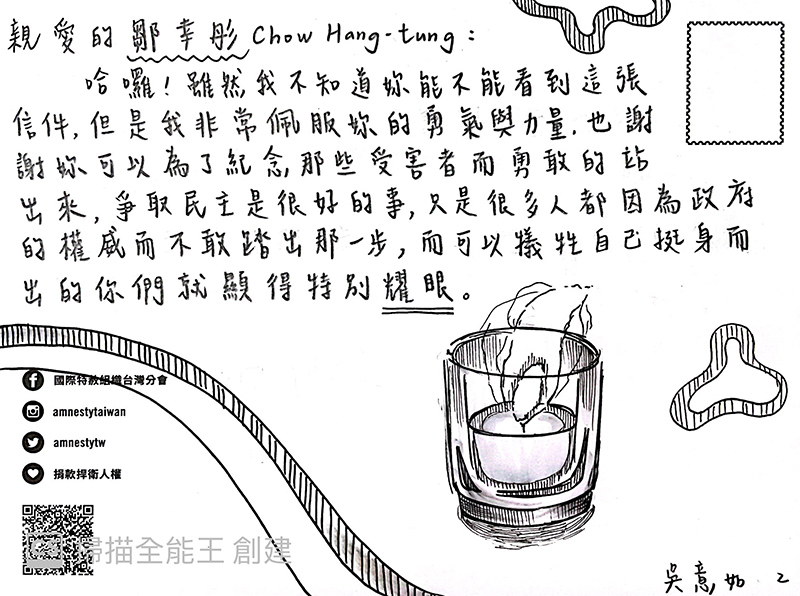 親愛的鄒幸彤 Chow Hang-tung：
哈囉！雖然我不知道妳能不能看到這張
信件，但是我非常佩服妳的勇氣與力量．也謝
謝妳可以為了紀念那些受害者而勇敢的站
出來，爭取民主是很好的事，只是很多人都因為政府
的權威而不敢踏出那一步，而可以犧牲自己挺身而
出的你們就顯得特別耀眼。
國際特赦組織台灣分會
amnestytaiwan
amnestytw
捐款捍衛人權
掃描全能王 創建
吳意如 2